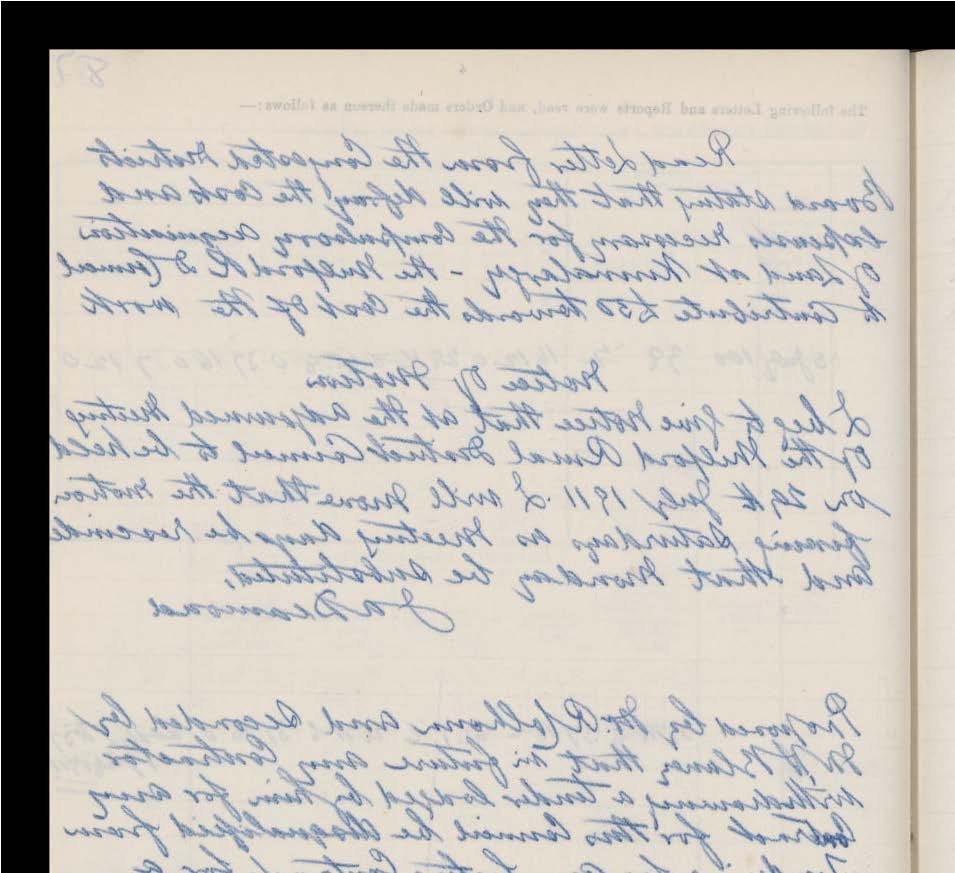 87
4
The following Letters and Reports were read, and Orders made thereon as follows:—
Read Letter from the Congested Districts
Board stating that they will defray the Cost and
expenses necessary for the Compulsory acquisition
of Land at - the Milford R D Council
to Contribute £50 towards the Cost of the work
Notice of Motion
I beg to give Notice that at the adjourned Meeting
of the Milford Rural District Council to be held
on 29th July 1911 I will move that the motion
fixing Saturdays as Meeting days be rescinded
and that Monday be substituted.
Proposed by Mr and Seconded by
Mr that in future any Contractor
withdrawing a tender lodged by him for any
Contract for this Council be disqualified from